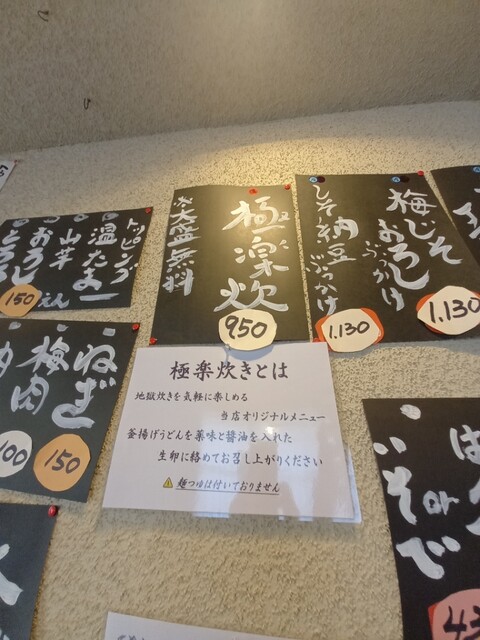 トッピング
温たま
山芋
おろし
150
えん
ねぎ
梅肉
100
150
極楽炊
ごく
らく
※大盛無料
950
梅じそ
おろし
ぶっかけ
1.130
しそ納豆
ぶっかけ
1.130
極楽炊きとは
地獄炊きを気軽に楽しめる
当店オリジナルメニュー
釜揚げうどんを薬味と醤油を入れた
生卵に絡めてお召し上がりください
麺つゆは付いておりません
or
いそで